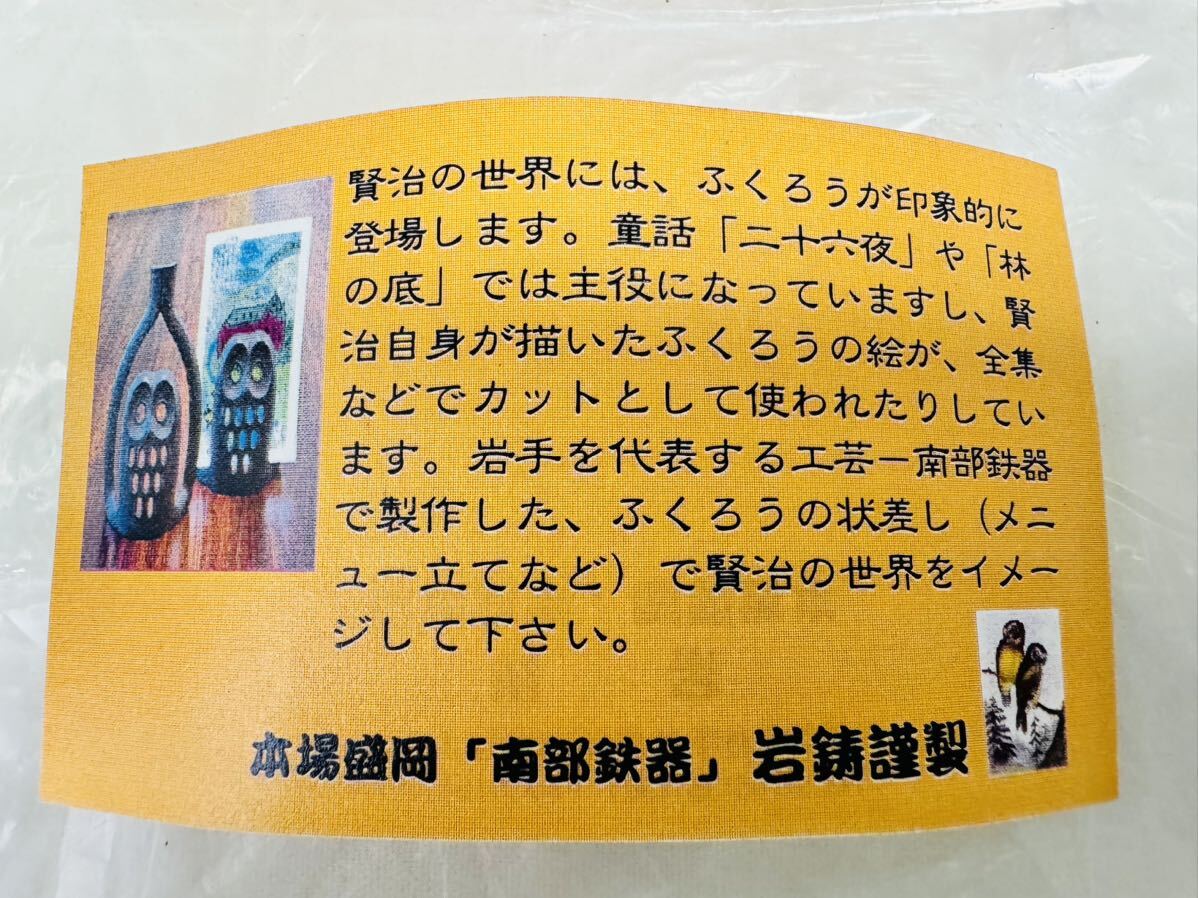 賢治の世界には、ふくろうが印象的に
登場します。童話「二十六夜」や「林
の底」では主役になっていますし、賢
治自身が描いたふくろうの絵が、全集
などでカットとして使われたりしてい
ます。岩手を代表する工芸ー南部鉄器
で製作した、ふくろうの状差し（メニ
ュー立てなど）で賢治の世界をイメー
ジして下さい。
本場盛岡「南部鉄器」岩鋳謹製